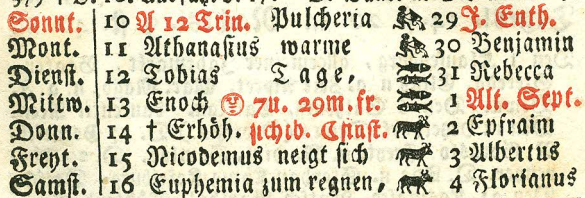 Sonnt. 10 A 12 Trin. Pulcheria 29 J. Enth.
Mont. 11 Athanasius warme 30 Benjamin
Dienst. 12 Tobias Tage, 31 Rebecca
Mittw. 13 Enoch 7u. 29m. fr. 1 Alt. Sept.
Donn. 14 † Erhöh. sichtb. Cfinst. 2 Epfraim
Freyt. 15 Nicodemus neigt sich 3 Albertus
Samst. 16 Euphemia zum regnen, 4 Florianus